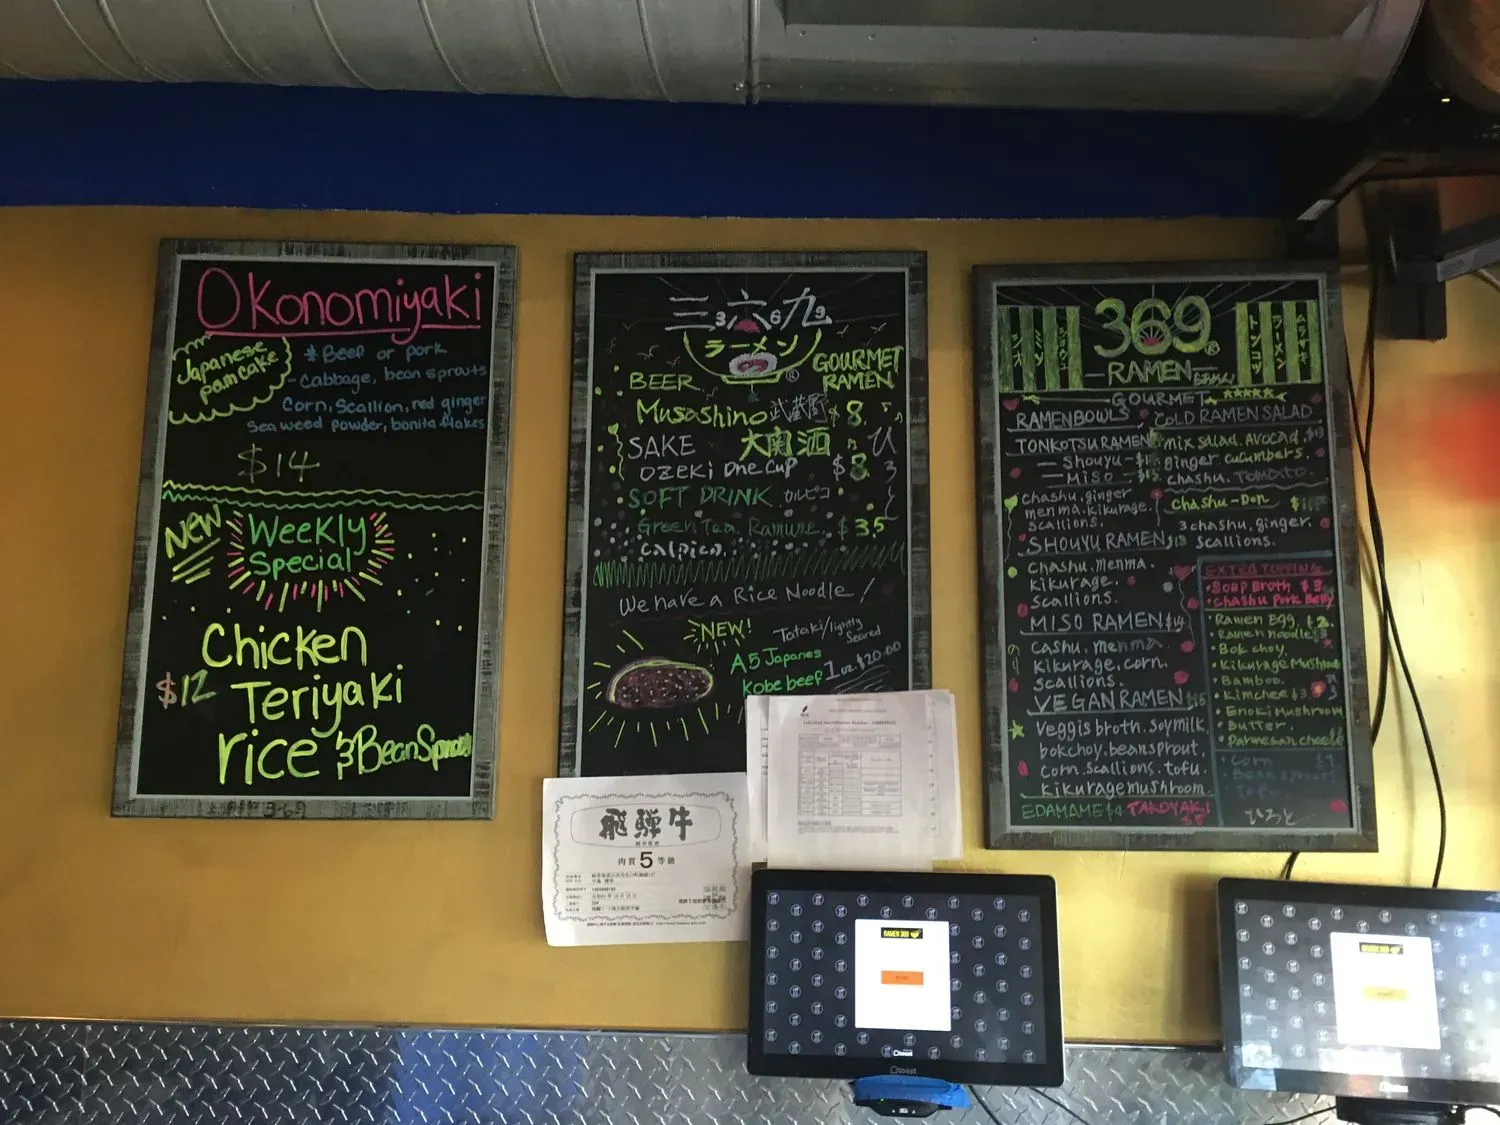 Okonomiyaki
Japanese
pamcake
* Beef or pork
- Cabbage, bean sprouts
Corn, Scallion, red ginger
Seaweed powder, bonita flakes
$14
NEW
Weekly
Special
Chicken
$12 Teriyaki
rice & Bean Sprouts
三3六6九9
ラーメン
GOURMET
RAMEN
BEER
Musashino 武蔵野 $8.
SAKE 大関酒
Ozeki One Cup $8
SOFT DRINK カルピコ
Green Tea. Ramune. $3.5
calpico.
ひろと
We have a Rice Noodle!
NEW!
Tataki/lightly
Seared
A5 Japanes
Kobe beef
1oz. $20.00
飛騨牛
肉質 5 等級
369
RAMEN
トンコツ
ラーメン
GOURMET
RAMEN BOWLS
TONKOTSU RAMEN
Shouyu
Miso
chashu. ginger
menma. kikurage.
scallions.
SHOUYU RAMEN
Chashu. menma.
kikurage.
scallions.
MISO RAMEN $14
Cashu. menma.
kikurage. corn.
scallions.
VEGAN RAMEN $15
Veggis broth. Soymilk.
bokchoy. beansprout.
corn. scallions. tofu.
kikurage mushroom.
EDAMAME $4 TAKOYAKI
COLD RAMEN SALAD
mix salad. Avocad.
ginger cucumbers.
chashu. Tomato.
Chashu-Don
3 chashu, ginger.
scallions.
EXTRA TOPPING
• Soup Broth $3
• Chashu Pork Belly
• Ramen Egg. $2.
• Ramen noodle $3
• Bok choy.
• Kikurage Mushroom
• Bamboo.
• Kimchee $3
• Enoki Mushroom
• Butter.
• Parmesan cheese
• Corn
• Bean sprouts
Tofu
ひろと
RAMEN 369
toast
toast
RAMEN 369
toast